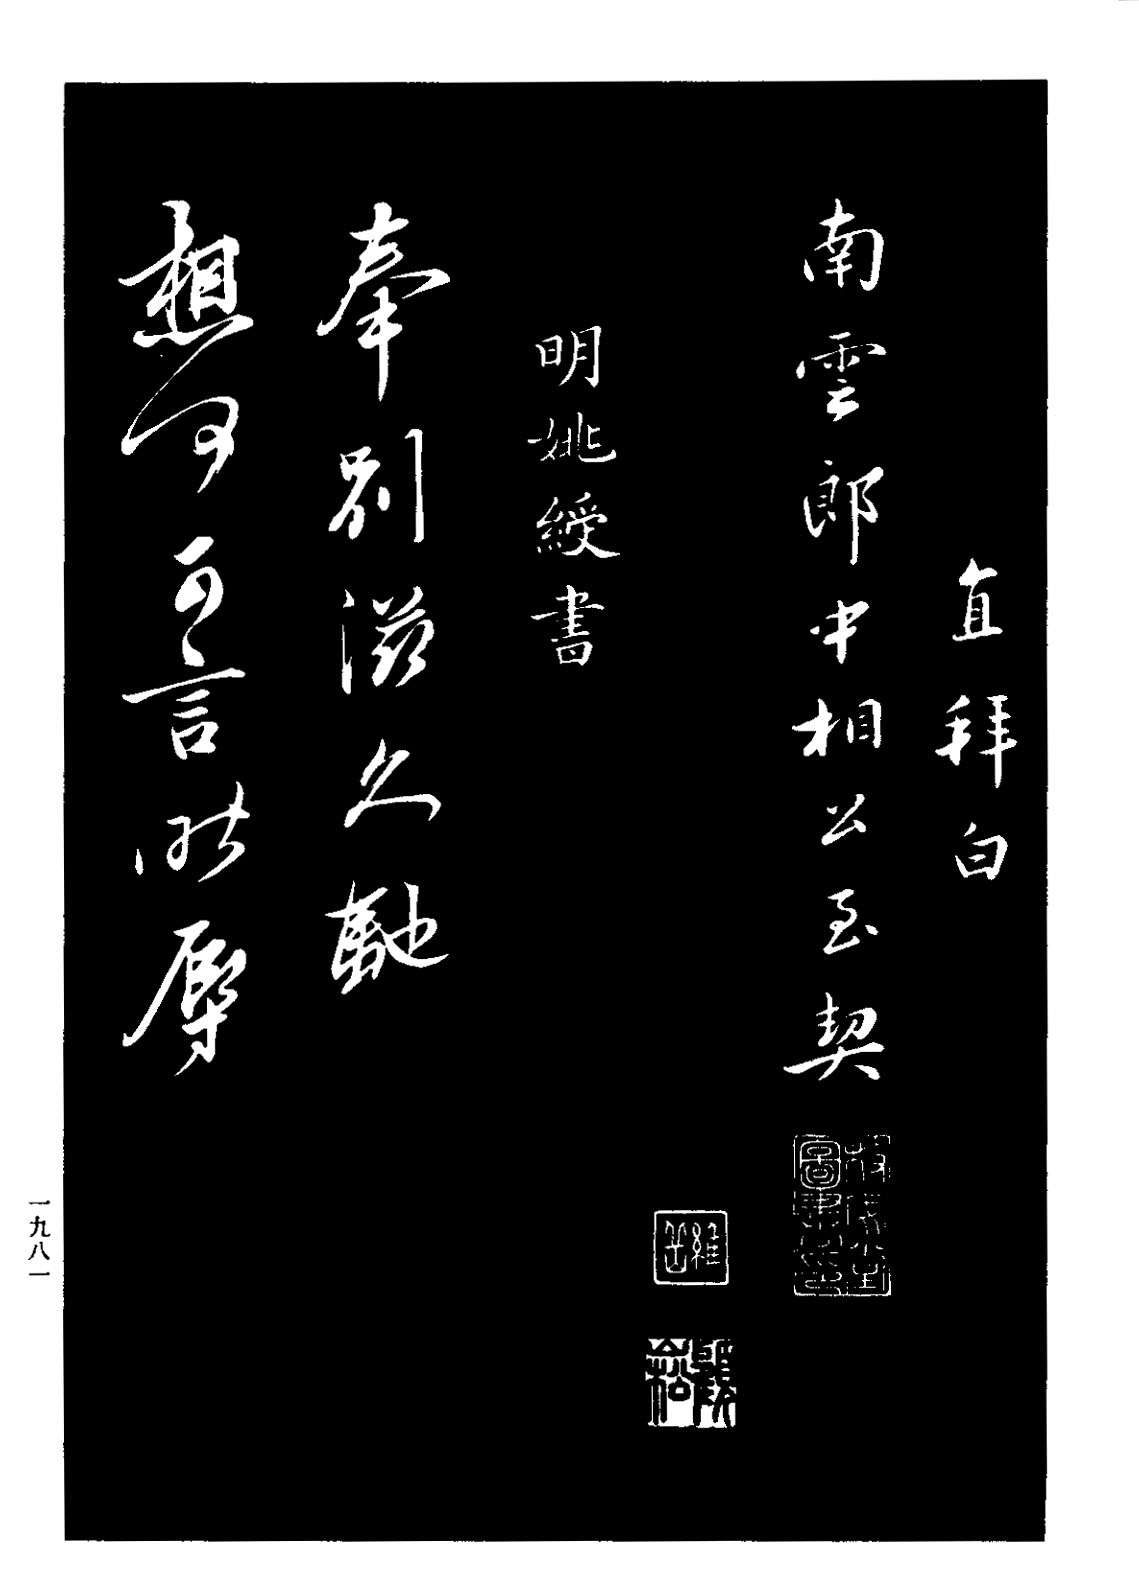 直拜白
南雲郎中相公至契
明姚綬書
奉別滋久馳
想何可言昨辱
一九八一